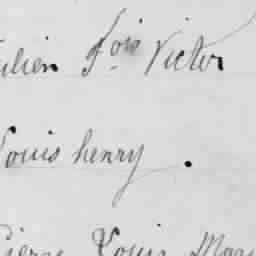 ulien fois Victor
Louis henry .
Pierre Louis Mari